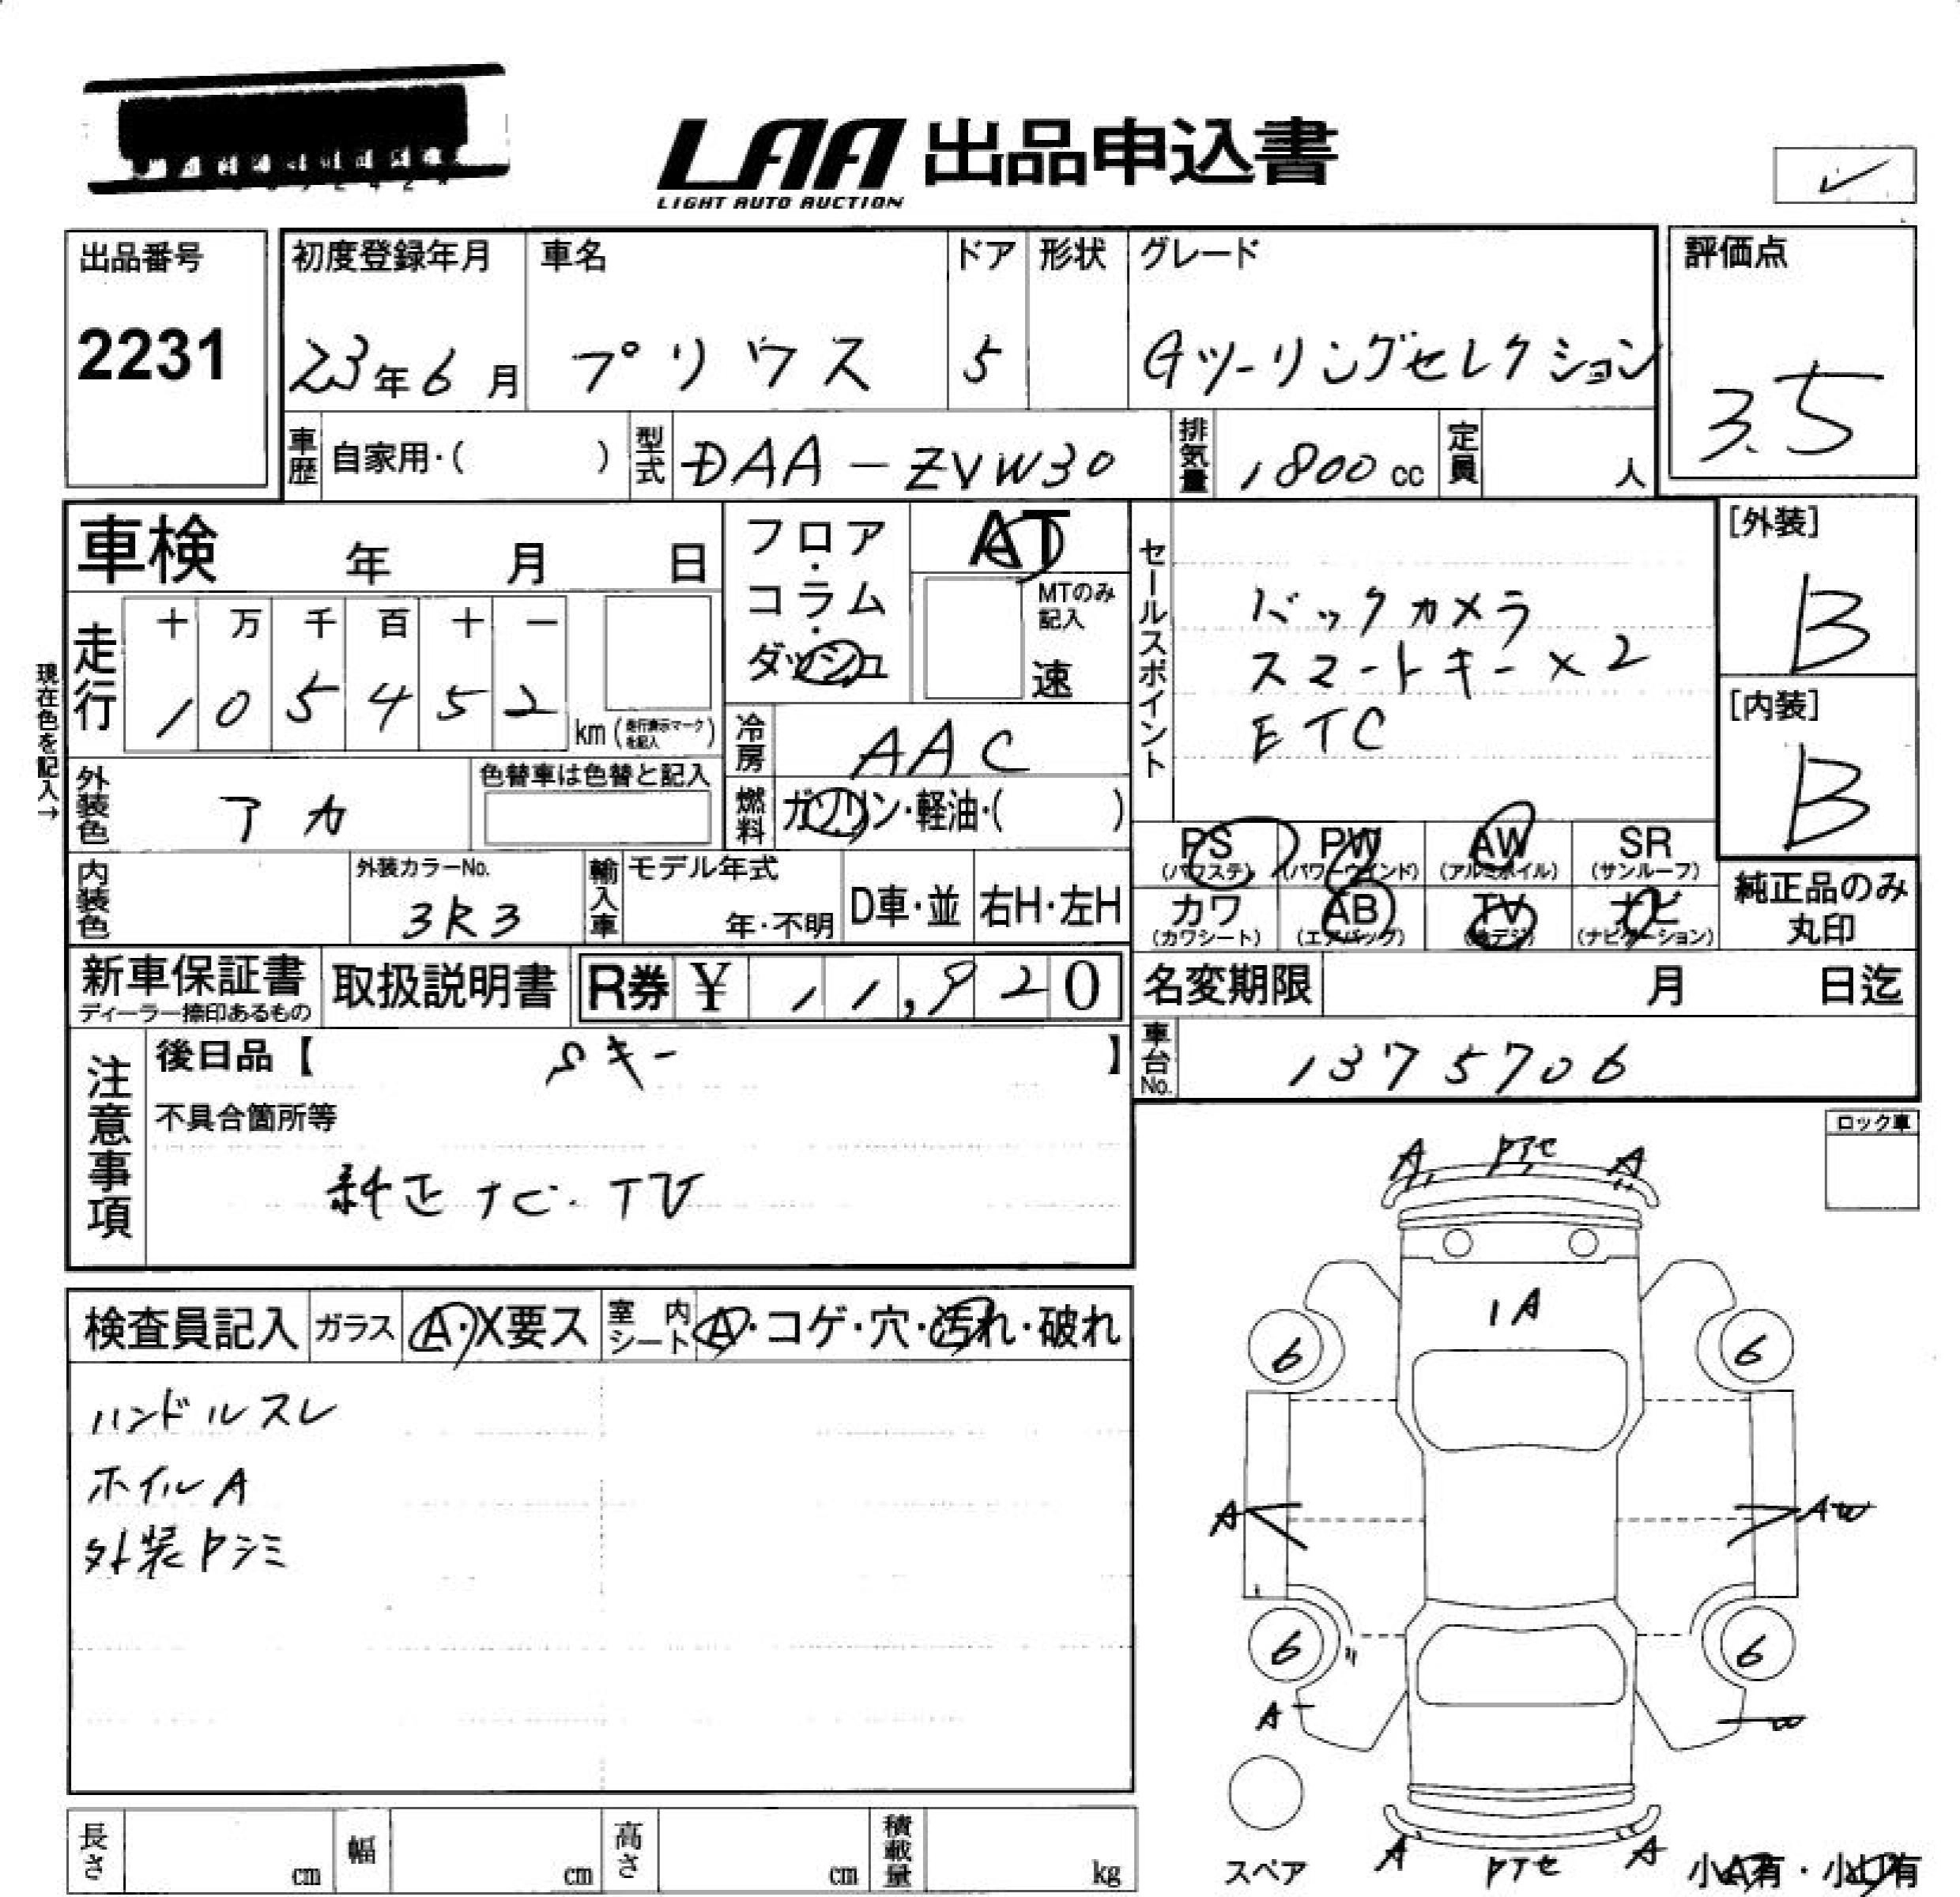 LAA 出品申込書
LIGHT AUTO AUCTION
出品番号
2231
初度登録年月
23年6月
車名
プリウス
ドア
5
形状
グレード
Gツーリングセレクション
評価点
3.5
車歴 自家用・( )
型式 DAA-ZVW30
排気量 1800cc
定員 人
車検 年 月 日
フロア・コラム・ダッシュ
AT
MTのみ記入
速
セールスポイント
バックカメラ
スマートキー×2
ETC
[外装]
B
[内装]
B
現在色を記入→
走行
十 万 千 百 十 一
1 0 5 4 5 2 km (走行表示マークを記入)
冷房 AAC
外装色 アカ
色替車は色替と記入
燃料 ガソリン・軽油・( )
PS (パワステ) PW (パワーウインド) AW (アルミホイル) SR (サンルーフ)
カワ (カワシート) AB (エアバッグ) TV (地デジ) ナビ (ナビゲーション)
純正品のみ丸印
内装色
外装カラーNo.
3R3
輸入車 モデル年式
年・不明
D車・並 右H・左H
新車保証書
ディーラー捺印あるもの
取扱説明書
R券 ¥ 11,920
名変期限 月 日迄
車台No. 1375706
注意事項
後日品【 キー 】
不具合箇所等
純正ナビ・TV
ロック車
検査員記入 ガラス A・X要ス 室内シート A・コゲ・穴・汚れ・破れ
ハンドルスレ
ホイルA
外装トシミ
A トアセ A
1A
6 6
A AW
6 6
A W
A トアセ A
スペア
小A有・小U有
長さ cm 幅 cm 高さ cm 積載量 kg